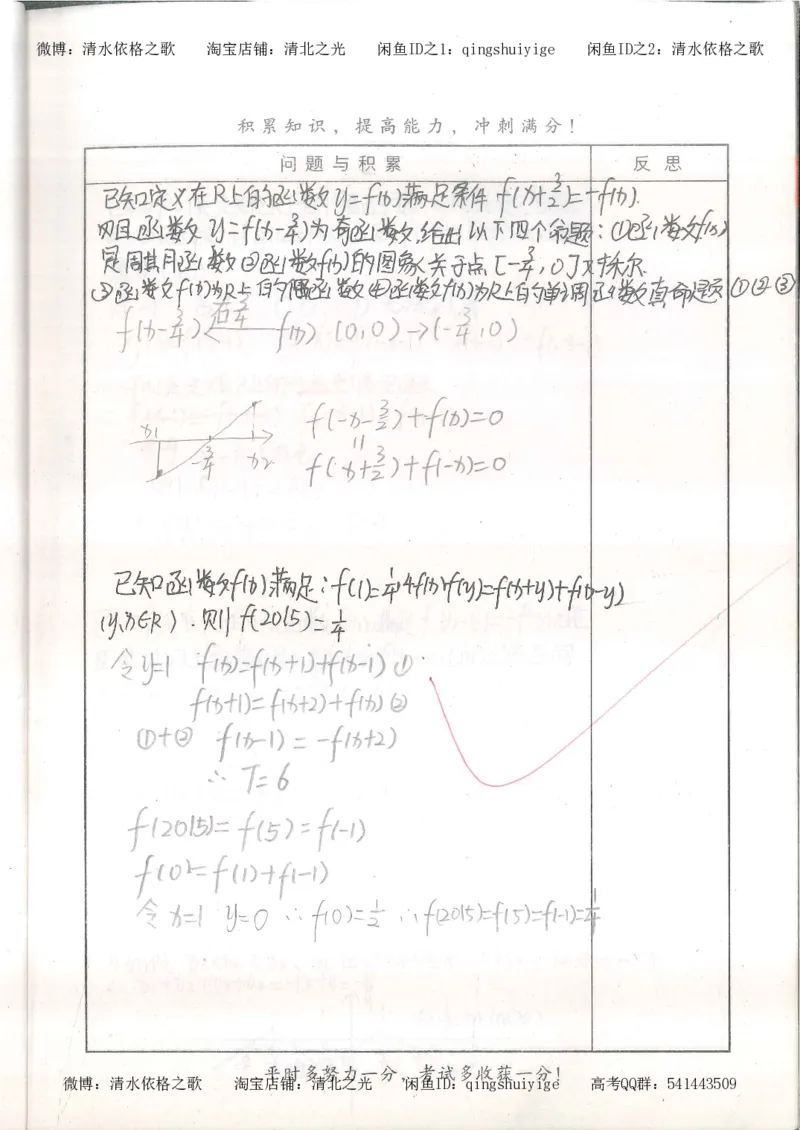 微博：清水依格之歌 淘宝店铺：清北之光 闲鱼ID之1：qingshuiyige 闲鱼ID之2：清水依格之歌
积累知识，提高能力，冲刺满分！
问题与积累 反思
已知定义在R上的函数y=f(x)满足条件 f(x+3/2)=-f(x).
且函数 y=f(x-3/4)为奇函数,给出以下四个命题：①函数f(x)
是周期函数②函数f(x)的图象关于点[-3/4,0]对称
③函数f(x)为R上的偶函数④函数f(x)为R上的单调函数真命题①②③
f(x-3/4) ←右3/4— f(x) (0,0)→(-3/4,0)
x1 -3/4 x2
f(-x-3/2)+f(x)=0
=
f(x+3/2)+f(-x)=0
已知函数f(x)满足：f(1)=1/4,4f(x)·f(y)=f(x+y)+f(x-y)
(y,x∈R).则f(2015)=1/4
令y=1 f(x)=f(x+1)+f(x-1)①
f(x+1)=f(x+2)+f(x)②
①+② f(x-1)=-f(x+2)
∴ T=6
f(2015)=f(5)=f(-1)
f(0)=f(1)+f(-1)
令x=1 y=0 ∴f(0)=1/2 ∴f(2015)=f(5)=f(-1)=1/4
平时多努力一分，考试多收获一分！
微博：清水依格之歌 淘宝店铺：清北之光 闲鱼ID：qingshuiyige 高考QQ群：541443509